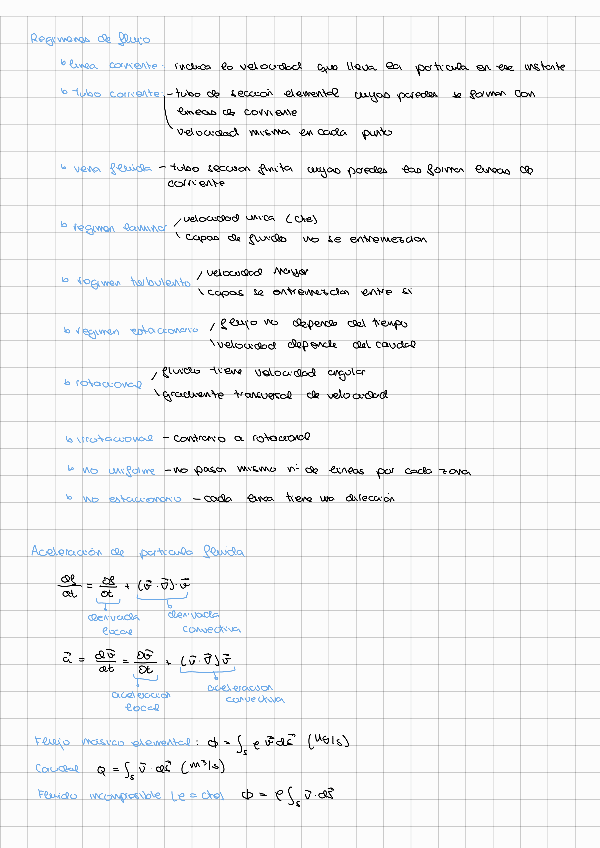 Regimenes de flujo
↳ linea corriente: indica la velocidad que lleva la particula en ese instante
↳ tubo corriente - tubo de sección elemental cuyas paredes se forman con
lineas de corriente
velocidad misma en cada punto
↳ vena fluida - tubo seccion finita cuyas paredes las forman lineas de
corriente
↳ regimen laminar / velocidad unica (cte)
\ capas de fluido no se entremezclan
↳ regimen turbulento / velocidad mayor
\ capas se entremezclan entre si
↳ regimen estacionario / flujo no depende del tiempo
\ velocidad depende del caudal
↳ rotacional / fluido tiene velocidad angular
\ gradiente transversal de velocidad
↳ irrotacional - contrario a rotacional
↳ no uniforme - no pasan mismo nº de lineas por cada zona
↳ no estacionario - cada linea tiene una dirección
Aceleración de particula fluida
df/dt = ∂f/∂t + (v⃗ · ∇⃗) · v⃗
derivada local
derivada convectiva
a⃗ = dv⃗/dt = ∂v⃗/∂t + (v⃗ · ∇⃗) v⃗
aceleracion local
aceleracion convectiva
Flujo másico elemental: ϕ = ∫s ρ v⃗ ds⃗ (kg/s)
Caudal Q = ∫s v⃗ · ds⃗ (m³/s)
Fluido incompresible (ρ = cte) ϕ = ρ ∫s v⃗ · ds⃗